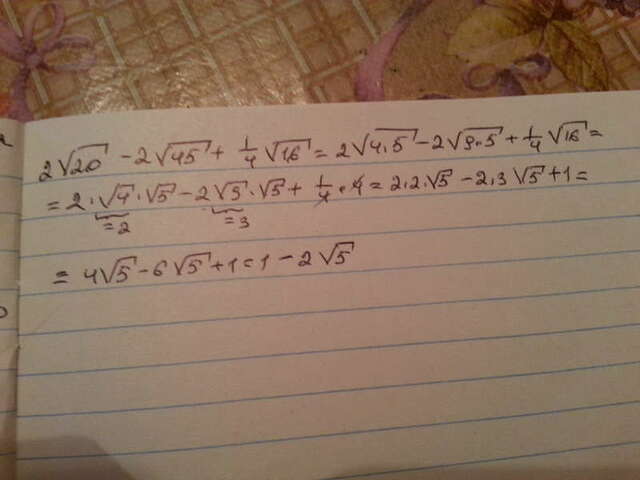 2√20 - 2√45 + 1/4 √16 = 2√4.5 - 2√9.5 + 1/4 √16 =
= 2.√4.√5 - 2√5.√5 + 1/4 . 4 = 2.2.√5 - 2.3√5 + 1 =
=2 =3
= 4√5 - 6√5 + 1 = 1 - 2√5